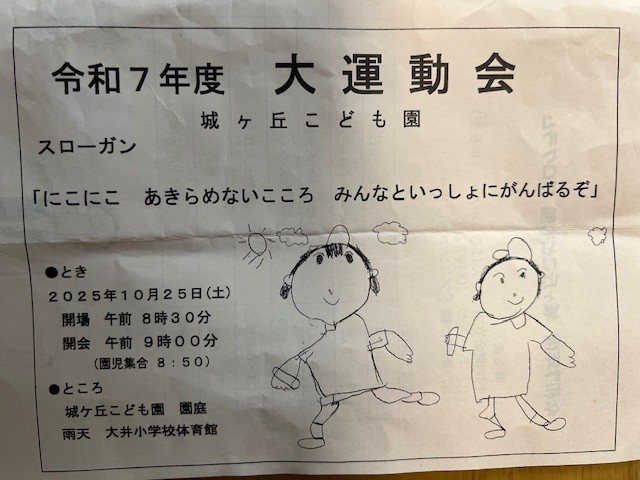 令和７年度　大運動会
城ヶ丘こども園
スローガン
「にこにこ　あきらめないこころ　みんなといっしょにがんばるぞ」
●とき
２０２５年１０月２５日(土)
開場　午前　８時３０分
開会　午前　９時００分
(園児集合　８：５０)
●ところ
城ケ丘こども園　園庭
雨天　大井小学校体育館